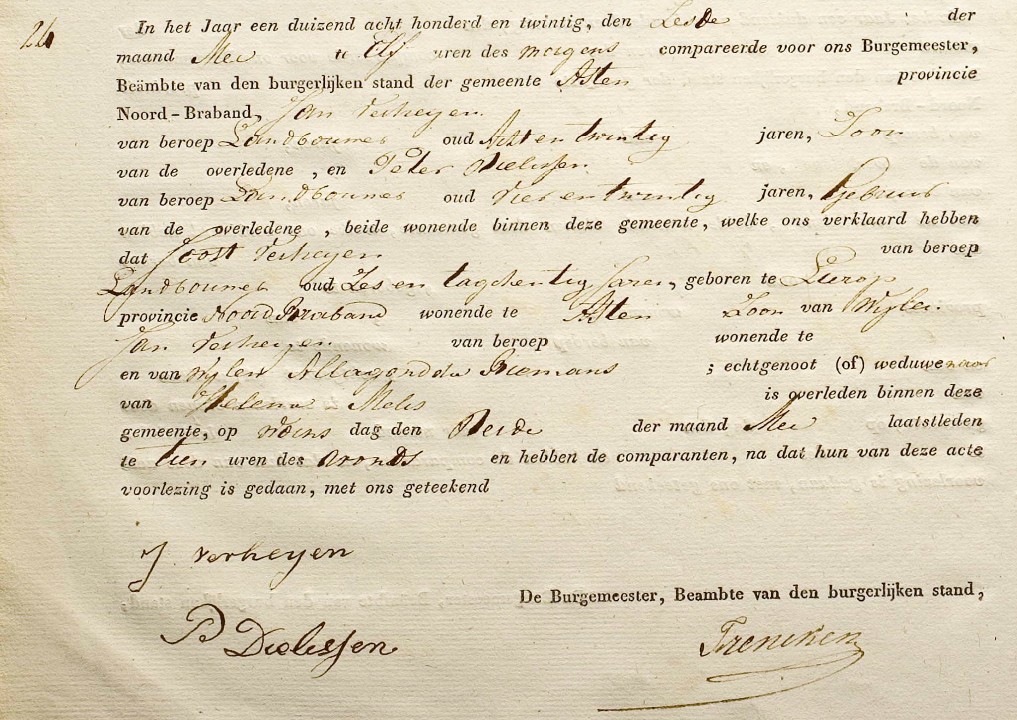 26
In het Jaar een duizend acht honderd en twintig, den Zesde der
maand Mei te Elf uren des morgens compareerde voor ons Burgemeester,
Beämbte van den burgerlijken stand der gemeente Asten provincie
Noord-Braband, Jan Verheyen
van beroep Landbouwer oud Acht en twintig jaren, Zoon
van de overledene, en Peter Dielissen
van beroep Landbouwer oud Vier en twintig jaren, Gebuur
van de overledene, beide wonende binnen deze gemeente, welke ons verklaard hebben
dat Joost Verheyen van beroep
Landbouwer oud Zes en tagchentig Jaren, geboren te Lierop
provincie Noord Braband wonende te Asten Zoon van Wylen
Jan Verheyen van beroep wonende te
en van wylen Allagondda Riemans ; echtgenoot (of) weduwenaar
van Helena Melis is overleden binnen deze
gemeente, op Woens dag den Derde der maand Mei laatstleden
te tien uren des avonds en hebben de comparanten, na dat hun van deze acte
voorlezing is gedaan, met ons geteekend
J Verheyen
De Burgemeester, Beambte van den burgerlijken stand,
P Dielissen
Frencken